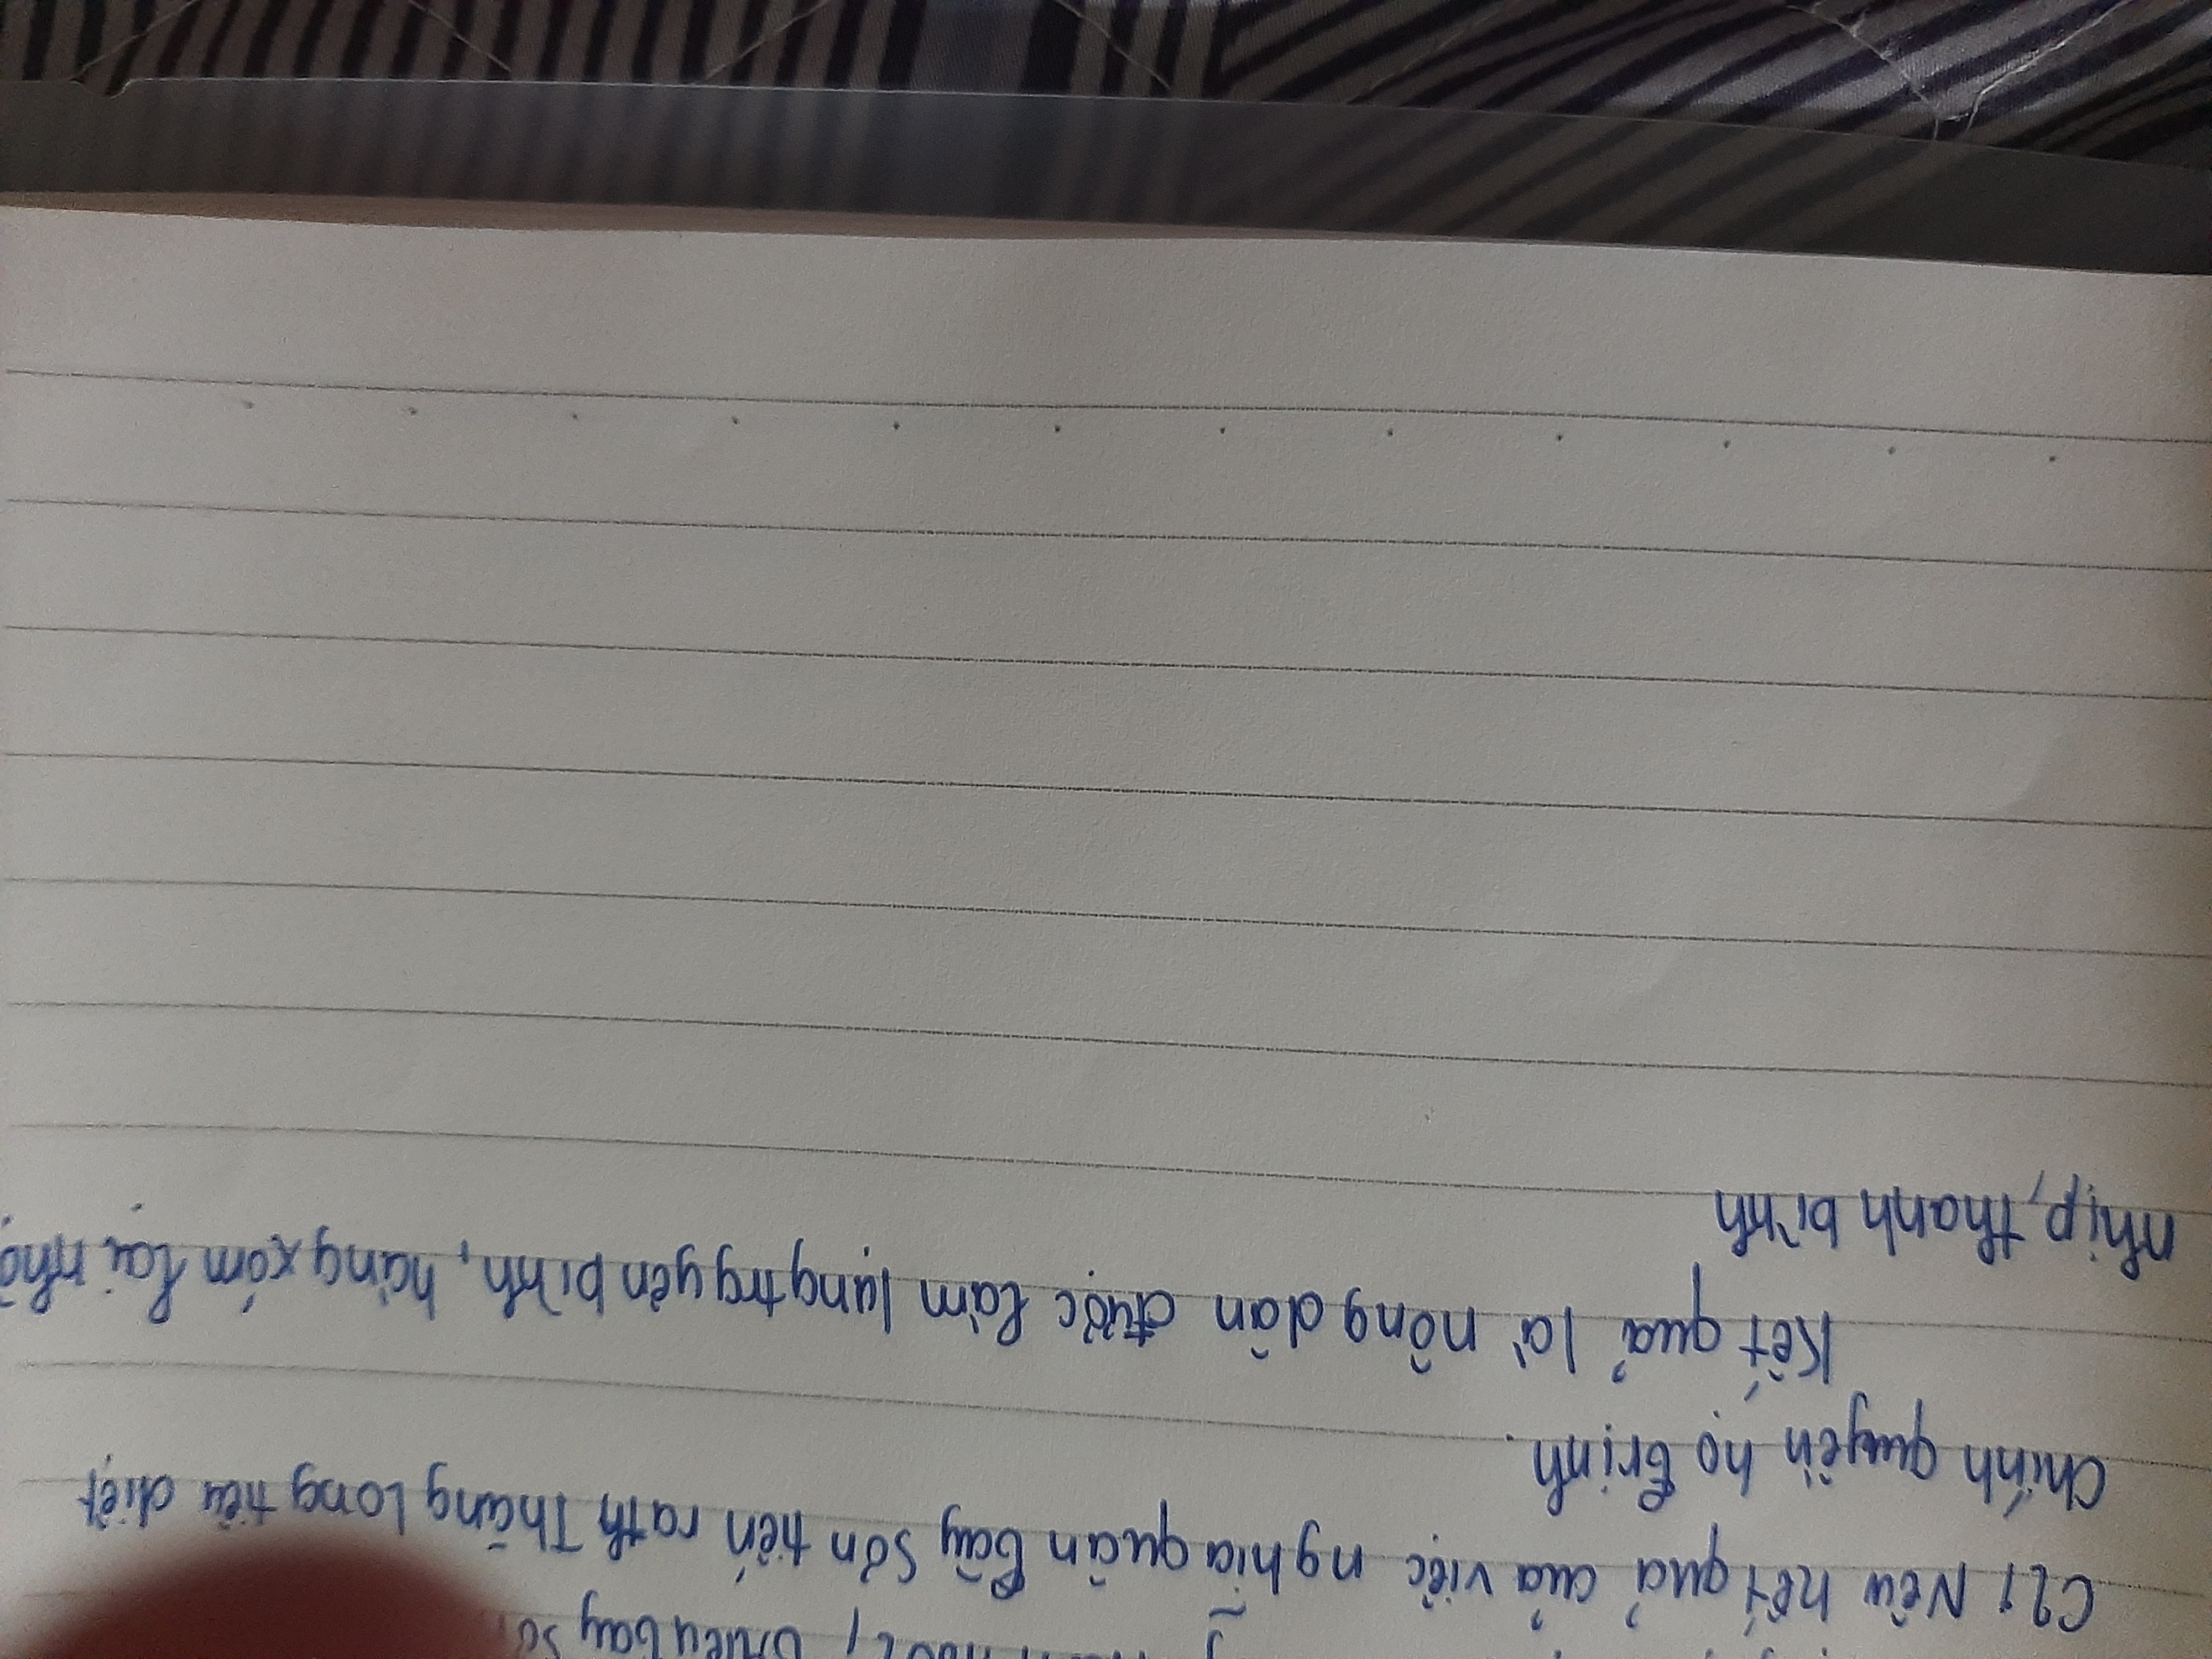 triều Tây Sơ
C2: Nêu kết quả của việc nghĩa quân Tây Sơn tiến ra th Thăng Long tiêu diệt
chính quyền họ Trịnh.
Kết quả là nông dân được làm lụng trg yên bình, hàng xóm lại nhộ
nhịp, thanh bình